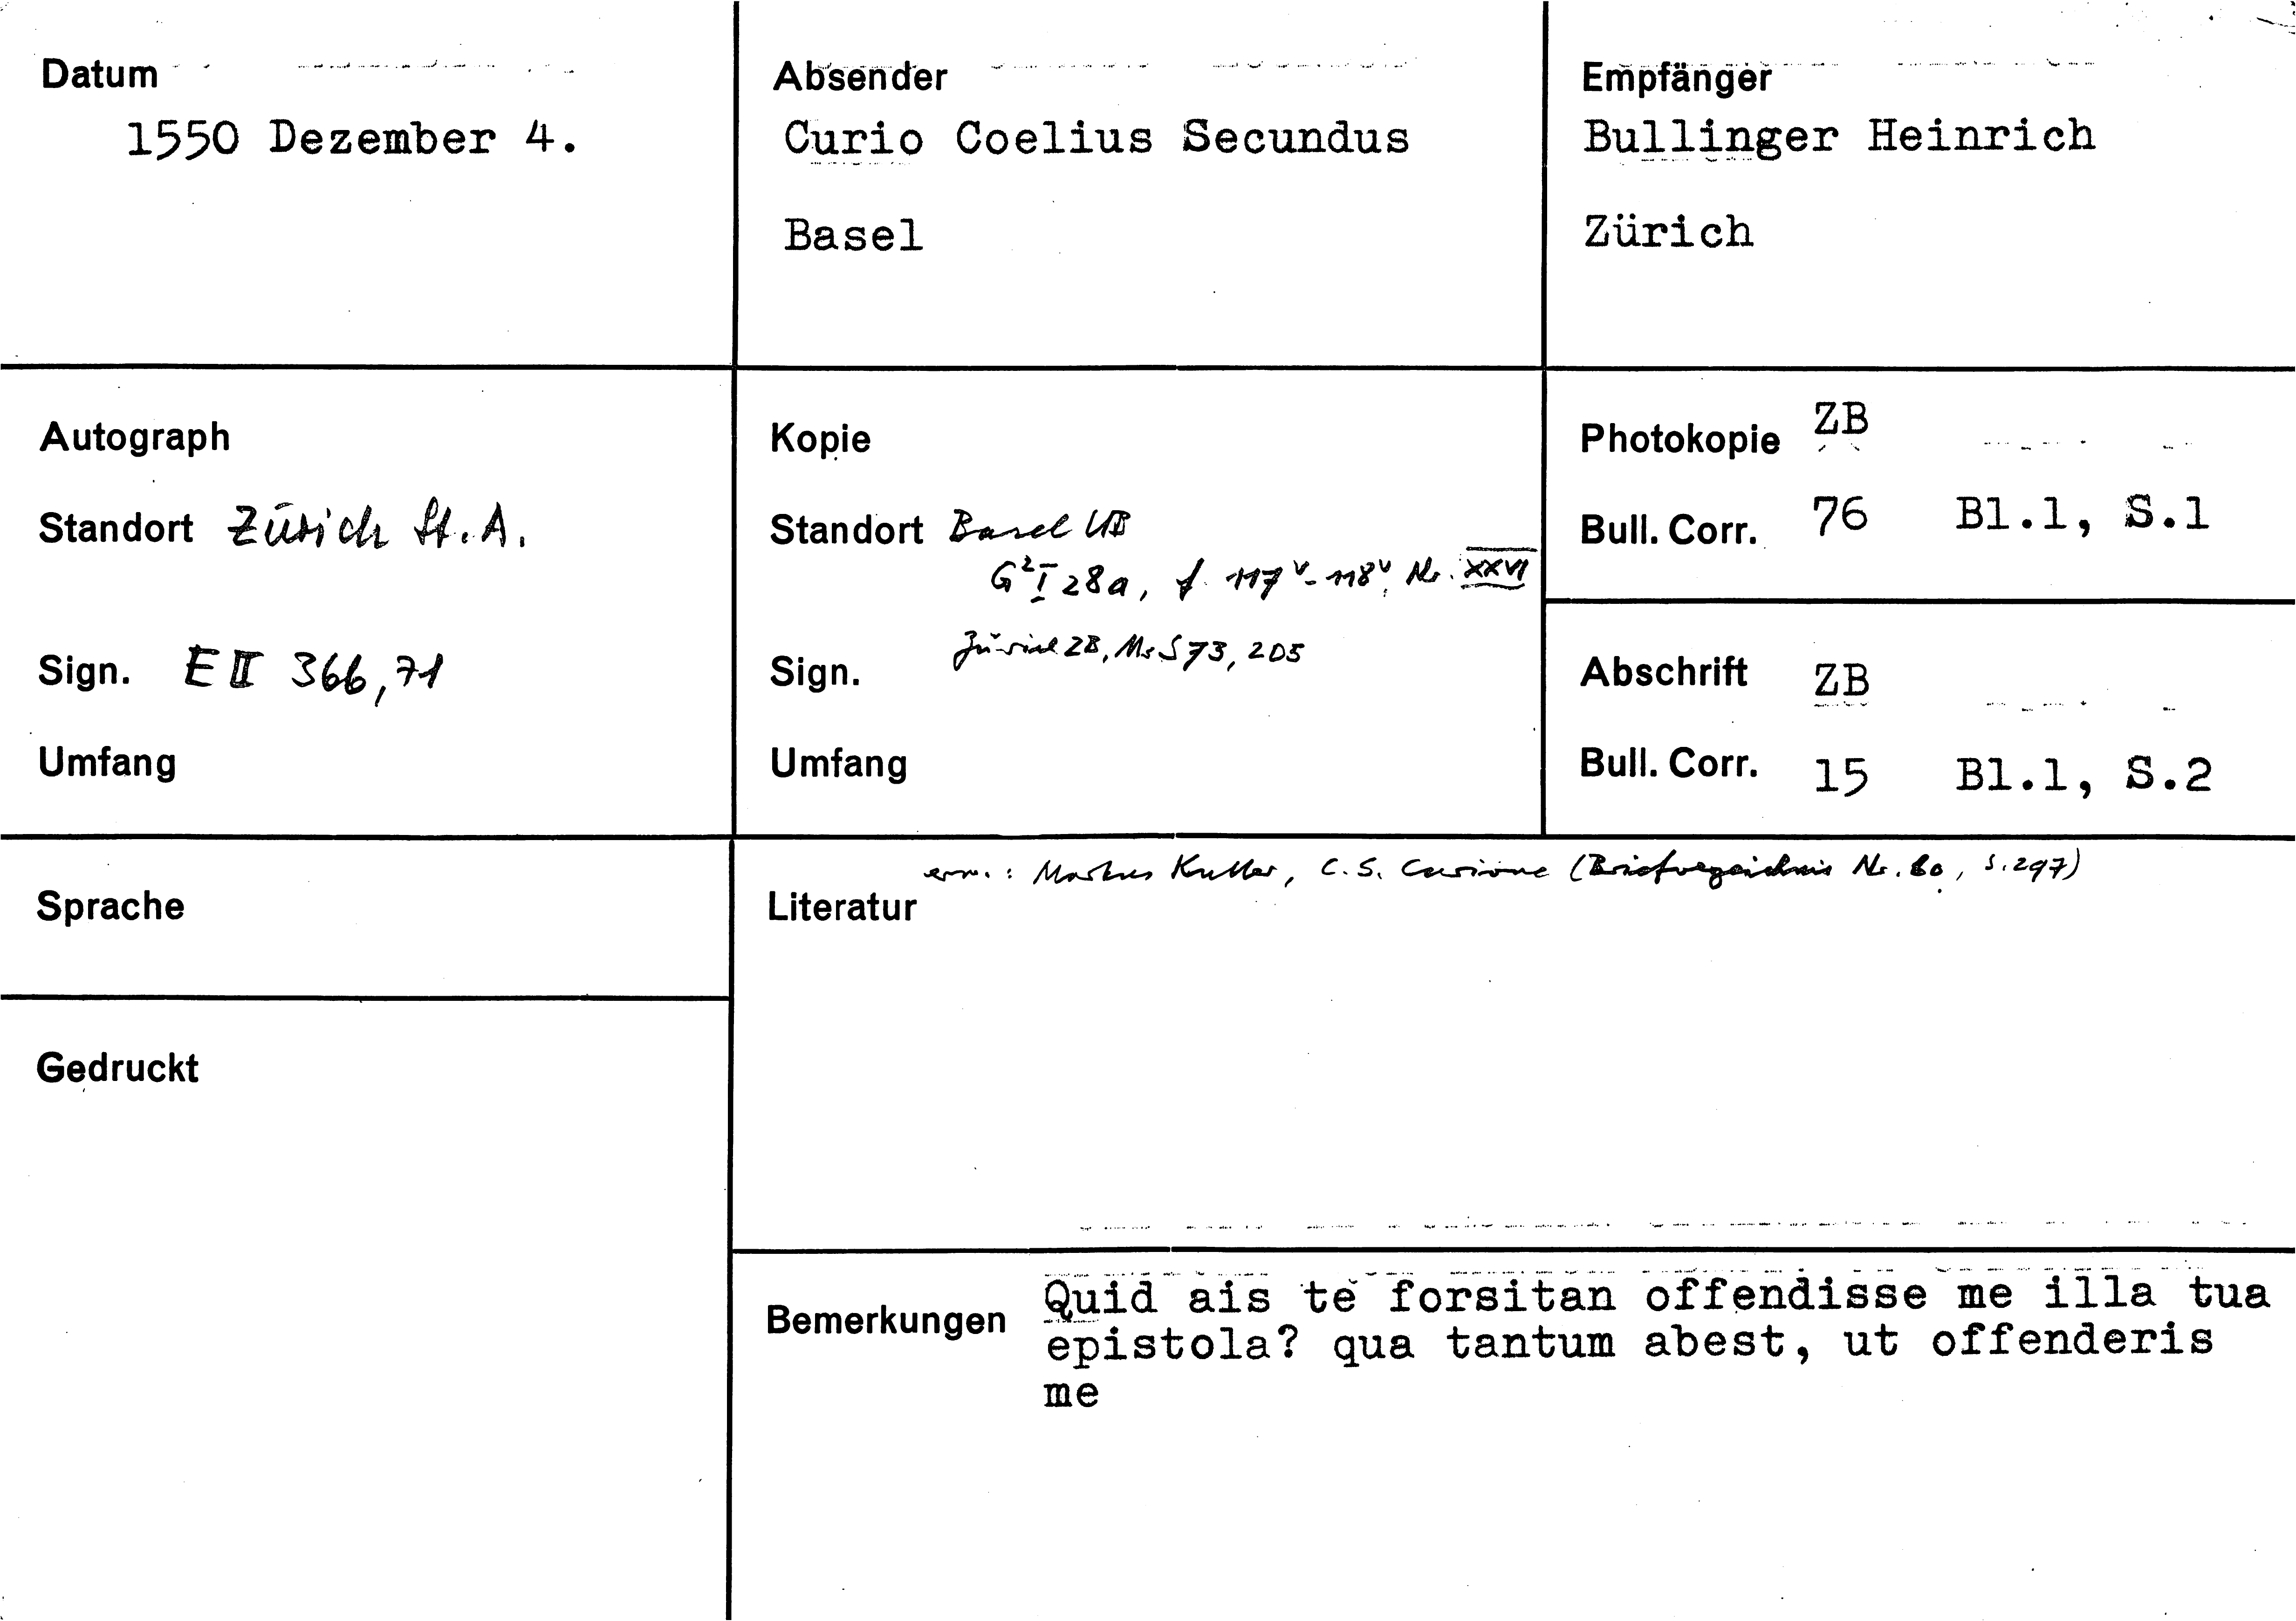 Datum
1550 Dezember 4.
Absender
Curio Coelius Secundus
Basel
Empfänger
Bullinger Heinrich
Zürich
Autograph
Standort Zürich St.A.
Sign. E II 366,71
Umfang
Kopie
Standort Basel UB
G² I 28a, f. 117v-118v, Nr. XXVI
Sign. Zürich ZB, Ms S 73, 205
Umfang
Photokopie ZB
Bull. Corr. 76 Bl.1, S.1
Abschrift ZB
Bull. Corr. 15 Bl.1, S.2
Sprache
Gedruckt
Literatur
erw.: Markus Kutter, C. S. Curione (Briefverzeichnis Nr. 80, S. 297)
Bemerkungen
Quid ais te forsitan offendisse me illa tua
epistola? qua tantum abest, ut offenderis
me